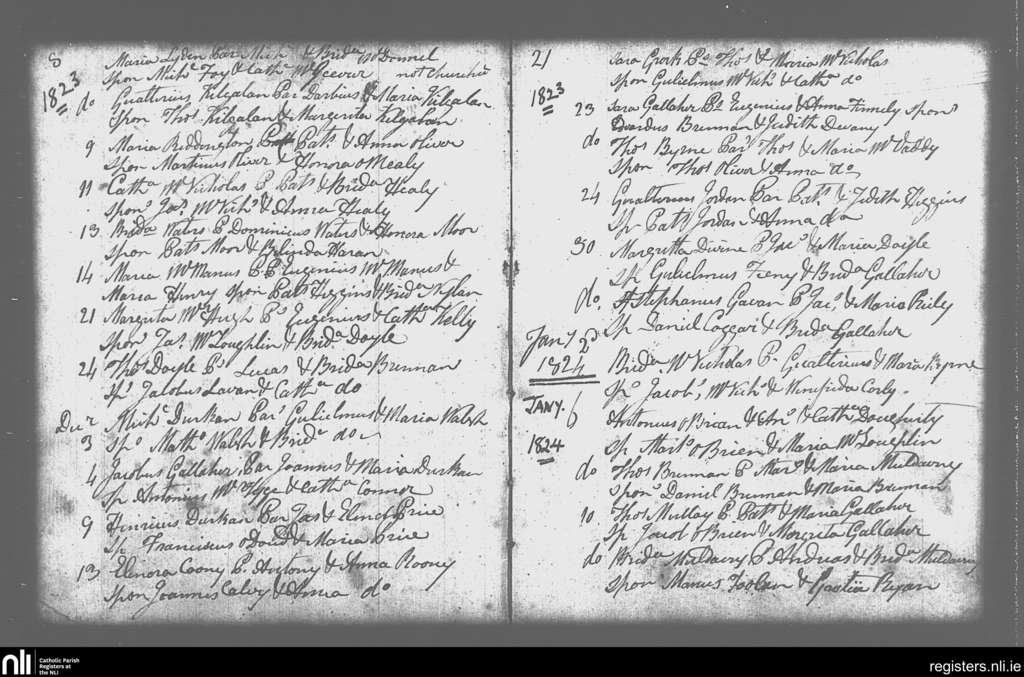 8 Maria Lyden Par Mich.l & Brid.a McDonnel
Spon Mich.l Foy & Cath.a McGeever not churched
1823
do Gualterius Kilgalan Par Darbius & Maria Kilgalan
Spon Tho.s Kilgalan & Margerita Kilgalan
9 Maria Reddington Pat.s & Anna Oliver
Spon Martinus River & Honora oMealy
11 Cath.a McNicholas P. Pat.s & Brid.a Healy
Spon.s Ja.s McNich.s & Anna Healy
13 Brid.a Waters P Dominicus Waters & Honora Moor
Spon Pat.s Moor & Belinda Haran
14 Maria McManus P.s Eugenius McManus &
Maria Henry Spon Pat.s Higgins & Brid.a
21 Margrita McHugh P.s Eugenius & Cath.a Kelly
Spon.s Ja.s McLoughlin & Brid.a Doyle
24 Tho.s Doyle P.s Lucas & Brid.a Brennan
Sp.s Jacobus Lavan & Cath.a do
Mich.l Durkan Par.s Gulielmus & Maria Walsh
3 Sp.s Math.s Walsh & Brid.a do
4 Jacobus Gallaher Par Joannes & Maria Durkan
Sp Antonius & Cath.a Connor
9 Henricus Durkan Par Jas & Elenor Price
Sp. Franciscus oDowd & Maria Price
13 Elnora Coony P Antony & Anna Rooney
Spon Joannes Calvy & Anna do
21 Sara P.s Tho.s & Maria McNicholas
Spon Gulielmus McNich.s & Cath.a do
1823
23 Sara Gallaher P.s Eugenius & Anna Finnely Spon.s
Edvardus Brennan & Judith Devany
do Tho.s Byrne Par.s Tho.s & Maria
Spon Tho.s River & Anna do
24 Gualterius Jordan Par Pat.s & Judith Higgins
Sp Pat.s Jordan & Anna do
30 Margritta Devine P Jac.s & Maria Doyle
Sp Gulielmus Feeny & Brid.a Gallaher
do. Stephanus Gavan P Jac.s & Maria Reily
Sp Daniel & Brid.a Gallaher
Jan.y 2d
1824 Brid.a McNicholas P. Gualterius & Maria Byrne
Sp.s Jacob.s McNich.s & Winifrida
JANY. 6 Antonius oBrien & Cath.a Dougherty
1824 Sp Mart.s oBrien & Maria McLoughlin
do Tho.s Brennan P Mar.s & Maria Muldowny
Spon.s Daniel Brennan & Maria Brennan
10 Tho.s Mullay P Pat.s & Maria Gallaher
Sp Jacob oBrien & Margrita Gallaher
do Brid.a Muldowny P Andreas & Brid.a Muldowny
Spon Manus & Ryan
nli
Catholic Parish
Registers at
the NLI
registers.nli.ie